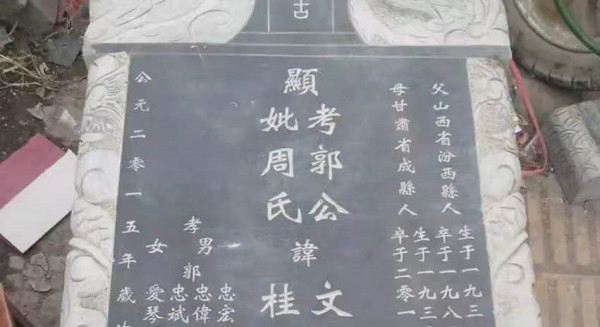 古
父山西省汾西縣人
生于一九三
卒于一九八
母甘肅省成縣人
生于一九三
卒于二零一
顯
考郭公
妣周氏
諱
文
桂
孝男郭
忠宏
忠偉
忠斌
女愛琴
公元二零一五年歲